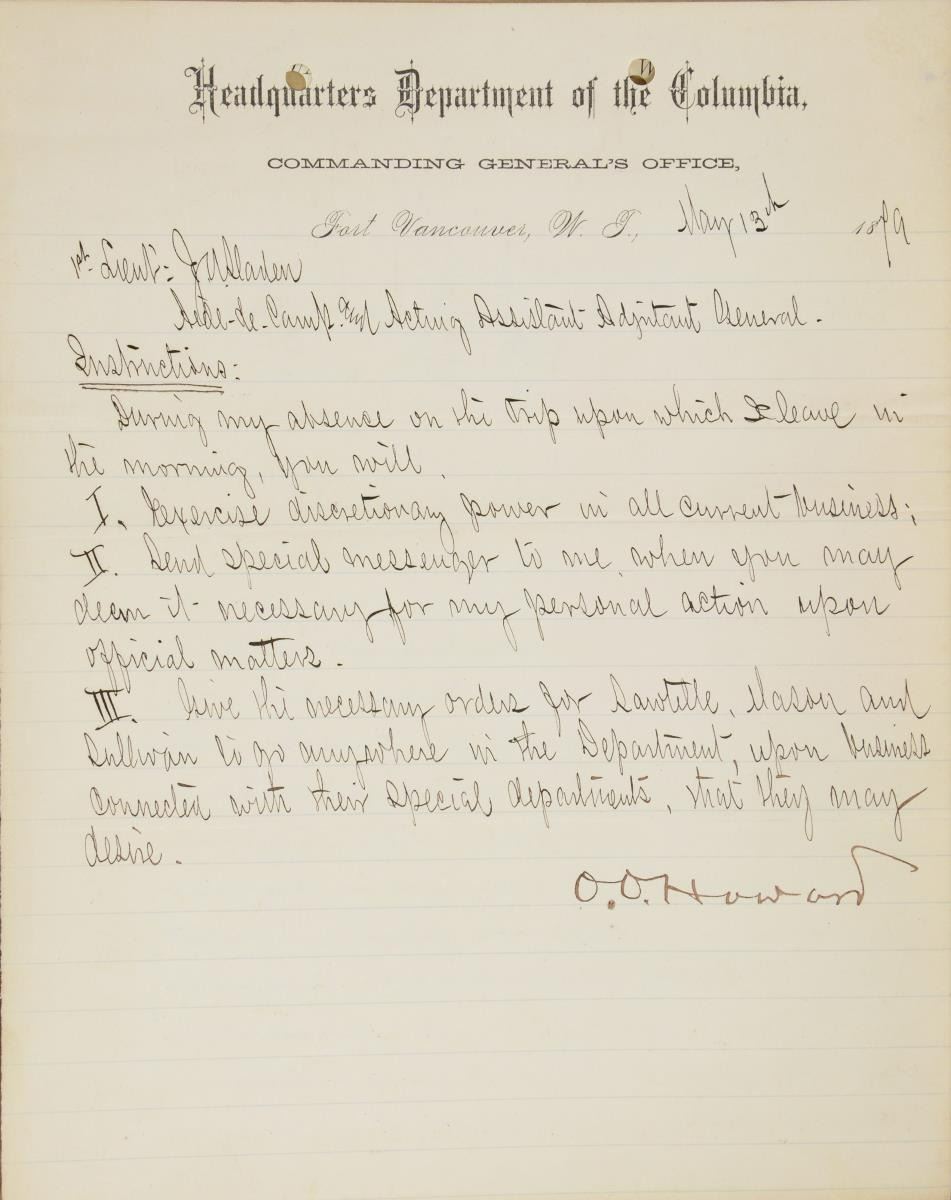 Headquarters Department of the Columbia,
COMMANDING GENERAL'S OFFICE,
Fort Vancouver, W. T., May 13th 1879
1st Lieut: J A Sladen
Aide-de-Camp. and Acting Assistant Adjutant General.
Instructions:
During my absence on the trip upon which I leave in
the morning, you will,
I. Exercise discretionary power in all current business;
II. Send special messenger to me, when you may
deem it necessary for my personal action upon
official matters.
III. Give the necessary orders for Sawtelle, Mason and
Sullivan to go anywhere in the Department, upon business
connected with their special departments, that they may
desire.
O. O. Howard